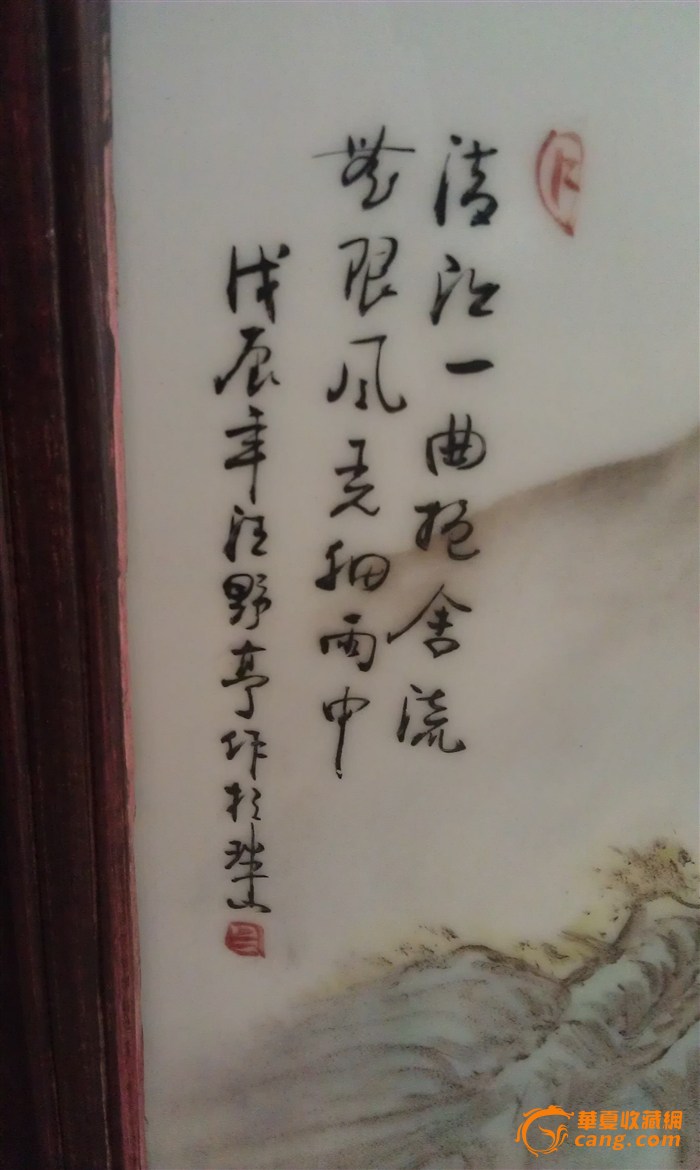 清江一曲抱舍流
無限风光细雨中
戊辰年汪野亭作於珠山
華夏收藏網
cang.com